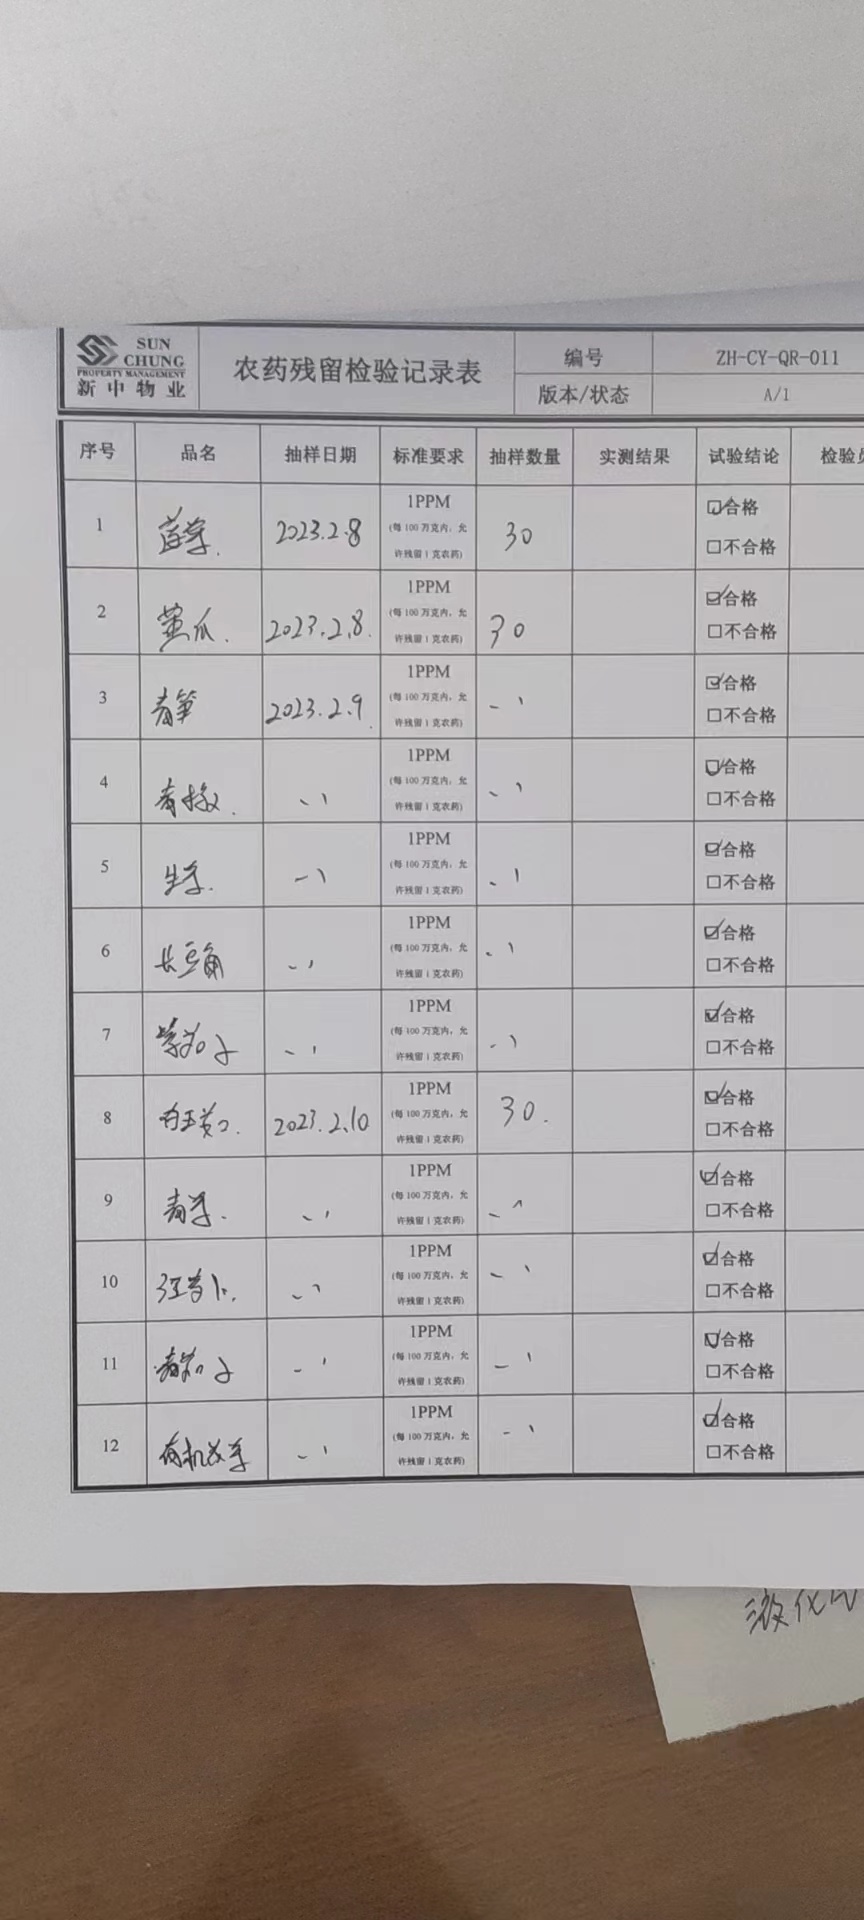 SUN
CHUNG
PROPERTY MANAGEMENT
新中物业
农药残留检验记录表
编号
ZH-CY-QR-011
版本/状态
A/1
序号 品名 抽样日期 标准要求 抽样数量 实测结果 试验结论 检验员
1 2023.2.8 1PPM 30 合格
(每100万克内，允
许残留1克农药) 不合格
2 黄瓜. 2023.2.8. 1PPM 30 合格
(每100万克内，允
许残留1克农药) 不合格
3 青笋 2023.2.9. 1PPM 合格
(每100万克内，允
许残留1克农药) 不合格
4 1PPM 合格
(每100万克内，允
许残留1克农药) 不合格
5 生菜. 1PPM 合格
(每100万克内，允
许残留1克农药) 不合格
6 长豆角 1PPM 合格
(每100万克内，允
许残留1克农药) 不合格
7 紫茄子 1PPM 合格
(每100万克内，允
许残留1克农药) 不合格
8 2023.2.10 1PPM 30. 合格
(每100万克内，允
许残留1克农药) 不合格
9 青菜. 1PPM 合格
(每100万克内，允
许残留1克农药) 不合格
10 1PPM 合格
(每100万克内，允
许残留1克农药) 不合格
11 青茄子 1PPM 合格
(每100万克内，允
许残留1克农药) 不合格
12 有机花菜 1PPM 合格
(每100万克内，允
许残留1克农药) 不合格